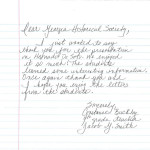 Dear Georgia Historical Society,
I just wanted to say
thank you for the presentation
on Hernando De Soto. We enjoyed
it so much. The students
learned some interesting information.
Once again thank you and
I hope you enjoy the letters
from the students.
Sincerely,
Buckley
grade teacher
Jacob G. Smith